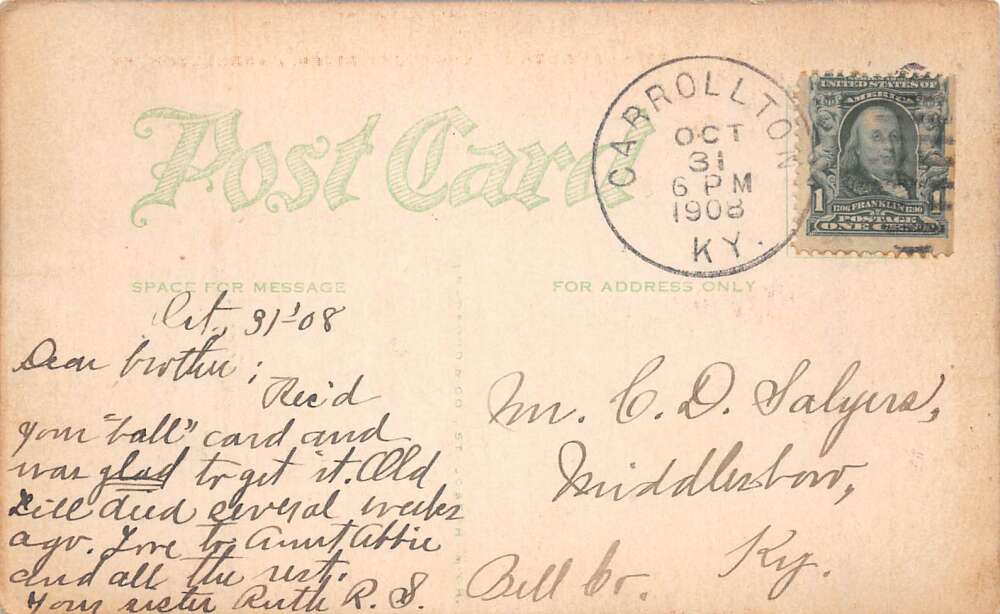 Post Card
CARROLLTON
OCT
31
6 PM
1908
KY.
UNITED STATES OF
AMERICA
1 1
1706 FRANKLIN 1790
POSTAGE
ONE
SPACE FOR MESSAGE
FOR ADDRESS ONLY
Oct, 31-'08
Dear brother;
Rec'd
your "ball" card and
was glad to get it. Old
died several weeks
ago. Love to Aunt Abbie
and all the rest.
Your sister Ruth R. S.
Mr. C. D. Salyers,
Middlesboro,
Ky.
Bell Co.